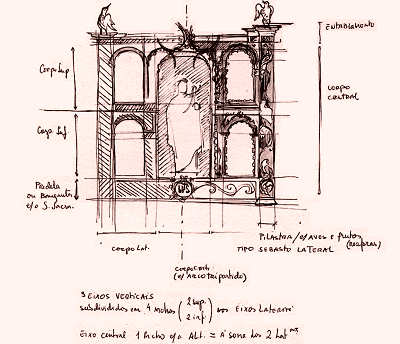 ENTABLAMENTO
Corpo Sup
CORPO
CENTRAL
Corpo Inf
Predela
ou Banqueta
c/o S. Sacra.
Corpo Lat.
PILASTRA c/ AVES e frutos
TIPO SEBASTO LATERAL
Corpo Cent.
(c/ ARCO TRIPARTIDO)
3 EIXOS VERTICAIS
subdivididos em 4 nichos (2 sup. 2 inf) nos EIXOS LATERAIS
Eixo central 1 Nicho c/ ALT. = A soma dos 2 Lat